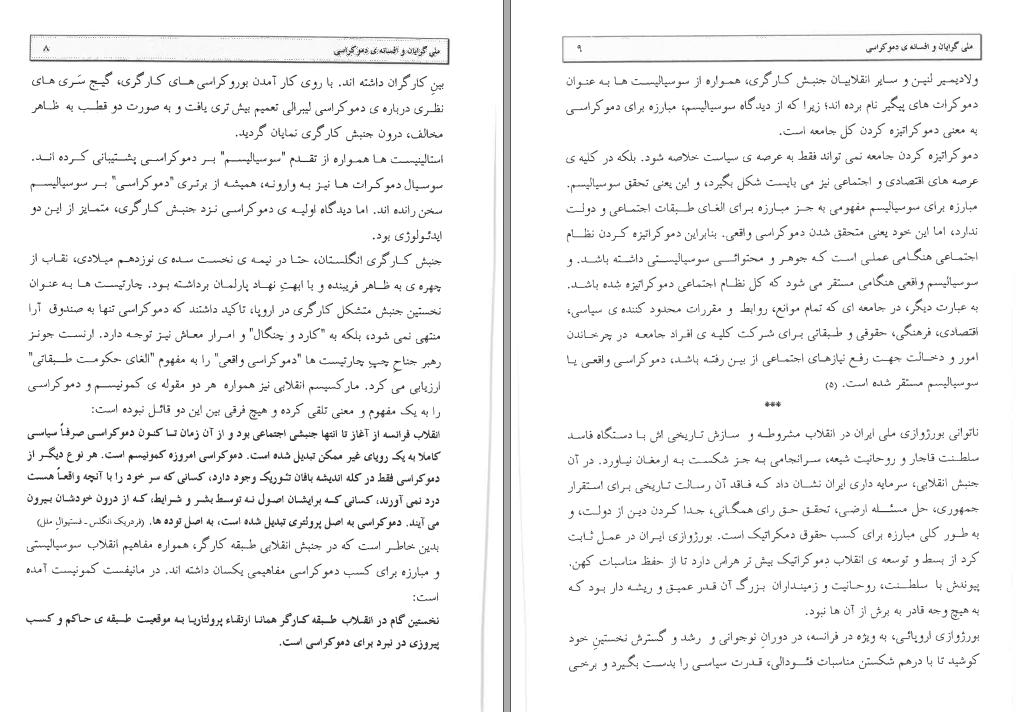 ملی گرایان و افسانه ی دموکراسی ۸
بین کارگران داشته اند. با روی کار آمدن بوروکراسی های کارگری، گیج سَری های
نظری درباره ی دموکراسی لیبرالی تعمیم بیش تری یافت و به صورت دو قطب به ظاهر
مخالف، درون جنبش کارگری نمایان گردید.
استالینیست ها همواره از تقدم "سوسیالیسم" بر دموکراسی پشتیبانی کرده اند.
سوسیال دموکرات ها نیز به وارونه، همیشه از برتری "دموکراسی" بر سوسیالیسم
سخن رانده اند. اما دیدگاه اولیه ی دموکراسی نزد جنبش کارگری، متمایز از این دو
ایدئولوژی بود.
جنبش کارگری انگلستان، حتا در نیمه ی نخست سده ی نوزدهم میلادی، نقاب از
چهره ی به ظاهر فریبنده و با ابهتِ نهاد پارلمان برداشته بود. چارتیست ها به عنوان
نخستین جنبش متشکل کارگری در اروپا، تاکید داشتند که دموکراسی تنها به صندوق آرا
منتهی نمی شود، بلکه به "کارد و چنگال" و امرار معاش نیز توجه دارد. ارنست جونز
رهبر جناح چپِ چارتیست ها "دموکراسی واقعی" را به مفهوم "الغای حکومت طبقاتی"
ارزیابی می کرد. مارکسیسم انقلابی نیز همواره هر دو مقوله ی کمونیسم و دموکراسی
را به یک مفهوم و معنی تلقی کرده و هیچ فرقی بین این دو قائل نبوده است:
انقلاب فرانسه از آغاز تا انتها جنبشی اجتماعی بود و از آن زمان تا کنون دموکراسی صرفاً سیاسی
کاملا به یک رویای غیر ممکن تبدیل شده است. دموکراسی امروزه کمونیسم است. هر نوع دیگر از
دموکراسی فقط در کله اندیشه بافان تئوریک وجود دارد، کسانی که سر خود را با آنچه واقعاً هست
درد نمی آورند، کسانی که برایشان اصول نه توسط بشر و شرایط، که از درون خودشان بیرون
می آیند. دموکراسی به اصل پرولتری تبدیل شده است، به اصل توده ها. (فردریک انگلس ـ فستیوالِ ملل)
بدین خاطر است که در جنبش انقلابی طبقه کارگر، همواره مفاهیم انقلاب سوسیالیستی
و مبارزه برای کسب دموکراسی مفاهیمی یکسان داشته اند. در مانیفست کمونیست آمده
است:
نخستین گام در انقلاب طبقه کارگر همانا ارتقاء پرولتاریا به موقعیت طبقه ی حاکم و کسب
پیروزی در نبرد برای دموکراسی است.
ملی گرایان و افسانه ی دموکراسی ۹
ولادیمیر لنین و سایر انقلابیان جنبش کارگری، همواره از سوسیالیست ها به عنوان
دموکرات های پیگیر نام برده اند؛ زیرا که از دیدگاه سوسیالیسم، مبارزه برای دموکراسی
به معنی دموکراتیزه کردن کل جامعه است.
دموکراتیزه کردن جامعه نمی تواند فقط به عرصه ی سیاست خلاصه شود. بلکه در کلیه ی
عرصه های اقتصادی و اجتماعی نیز می بایست شکل بگیرد، و این یعنی تحقق سوسیالیسم.
مبارزه برای سوسیالیسم مفهومی به جز مبارزه برای الغای طبقات اجتماعی و دولت
ندارد، اما این خود یعنی متحقق شدن دموکراسی واقعی. بنابراین دموکراتیزه کردن نظام
اجتماعی هنگامی عملی است که جوهر و محتوائی سوسیالیستی داشته باشد. و
سوسیالیسم واقعی هنگامی مستقر می شود که کل نظام اجتماعی دموکراتیزه شده باشد.
به عبارت دیگر، در جامعه ای که تمام موانع، روابط و مقررات محدود کننده ی سیاسی،
اقتصادی، فرهنگی، حقوقی و طبقاتی برای شرکت کلیه ی افراد جامعه در چرخاندن
امور و دخالت جهت رفع نیازهای اجتماعی از بین رفته باشد، دموکراسی واقعی یا
سوسیالیسم مستقر شده است. (۵)
***
ناتوانی بورژوازی ملی ایران در انقلاب مشروطه و سازش تاریخی اش با دستگاه فاسد
سلطنت قاجار و روحانیت شیعه، سرانجامی به جز شکست به ارمغان نیاورد. در آن
جنبش انقلابی، سرمایه داری ایران نشان داد که فاقد آن رسالت تاریخی برای استقرار
جمهوری، حل مسئله ارضی، تحقق حق رای همگانی، جدا کردن دین از دولت، و
به طور کلی مبارزه برای کسب حقوق دمکراتیک است. بورژوازی ایران در عمل ثابت
کرد از بسط و توسعه ی انقلاب دموکراتیک بیش تر هراس دارد تا از حفظ مناسبات کهن.
پیوندش با سلطنت، روحانیت و زمینداران بزرگ آن قدر عمیق و ریشه دار بود که
به هیچ وجه قادر به برش از آن ها نبود.
بورژوازی اروپائی، به ویژه در فرانسه، در دورانِ نوجوانی و رشد و گسترش نخستینِ خود
کوشید تا با درهم شکستن مناسبات فئودالی، قدرت سیاسی را بدست بگیرد و برخی